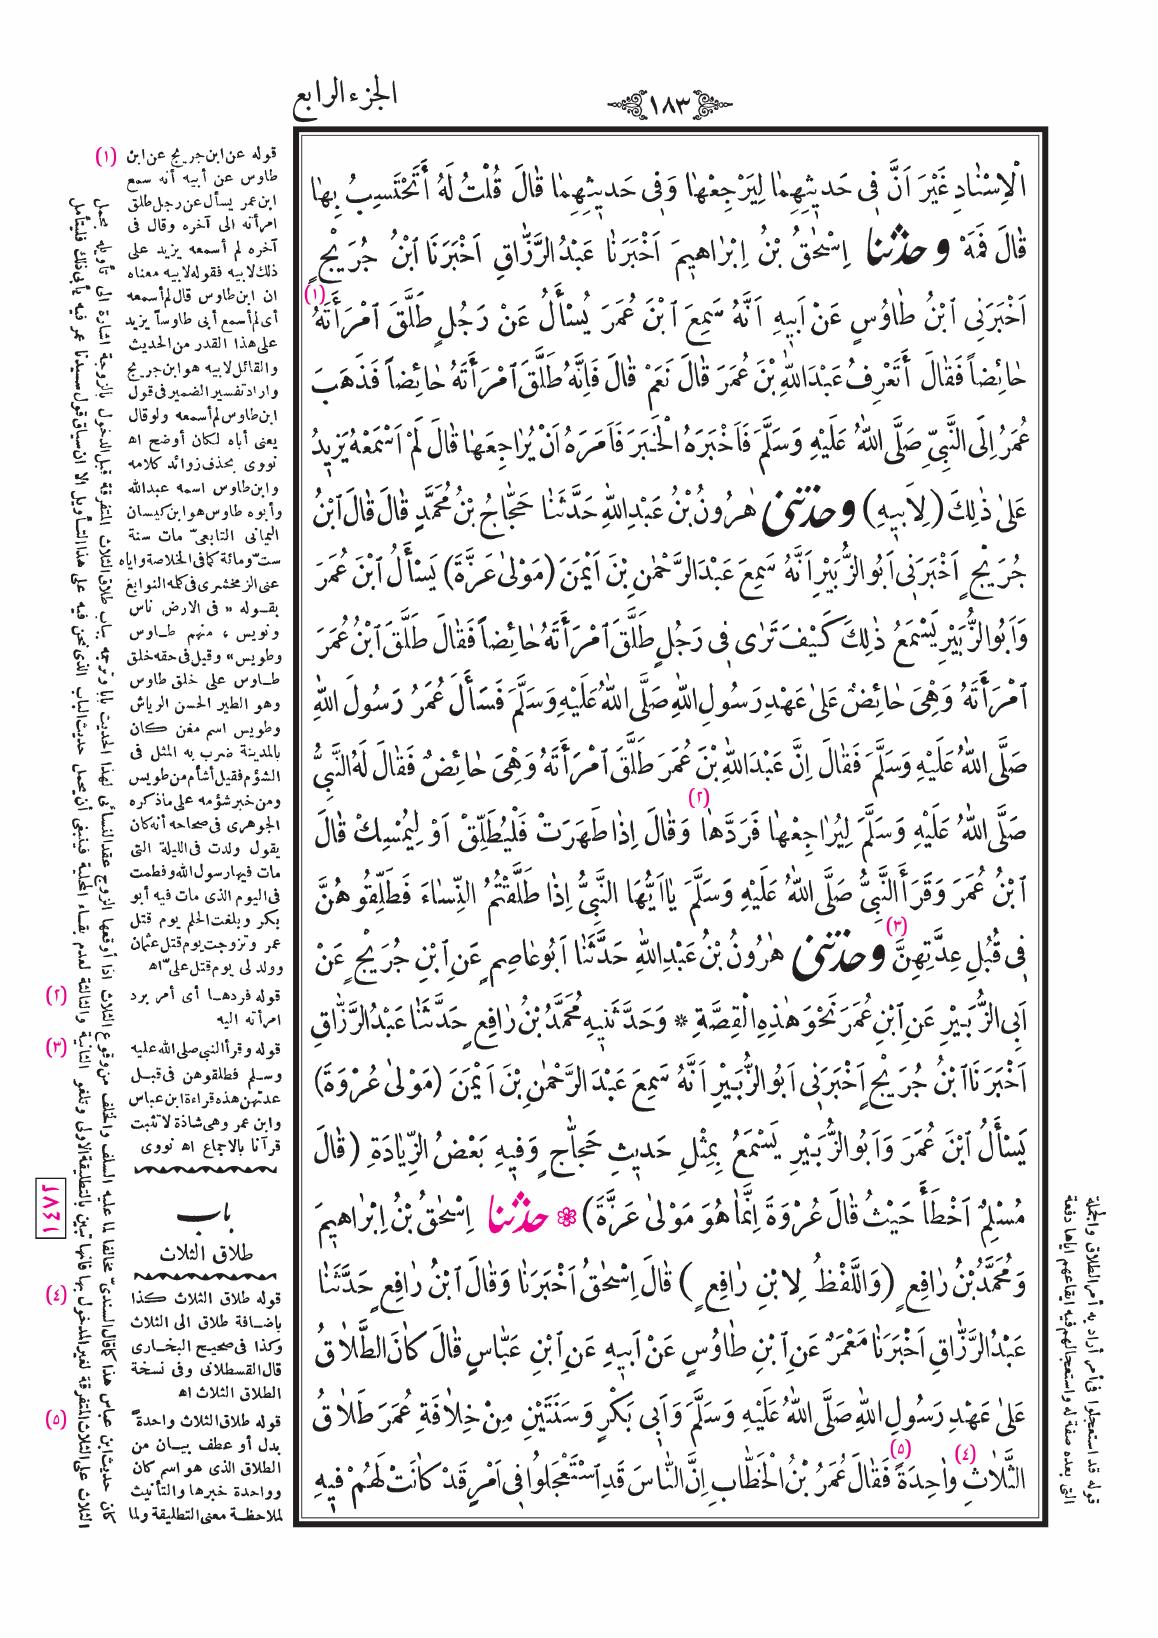 الجزء الرابع
١٨٣
الْاِسْنَادِ غَيْرَ اَنَّ فِى حَدِيثِهِمَا لِيَرْجِعْهَا وَفِى حَدِيثِهِمَا قَالَ قُلْتُ لَهُ أَتَحْتَسِبُ بِهَا
قَالَ فَمَهْ وحدثنا اِسْحٰقُ بْنُ اِبْرَاهِيمَ اَخْبَرَنَا عَبْدُ الرَّزَّاقِ اَخْبَرَنَا ابْنُ جُرَيْجٍ
اَخْبَرَنِى ابْنُ طَاوُسٍ عَنْ اَبِيهِ اَنَّهُ سَمِعَ ابْنَ عُمَرَ يُسْأَلُ عَنْ رَجُلٍ طَلَّقَ امْرَأَتَهُ (١)
حَائِضاً فَقَالَ أَتَعْرِفُ عَبْدَ اللّٰهِ بْنَ عُمَرَ قَالَ نَعَمْ قَالَ فَاِنَّهُ طَلَّقَ امْرَأَتَهُ حَائِضاً فَذَهَبَ
عُمَرُ اِلَى النَّبِىِّ صَلَّى اللّٰهُ عَلَيْهِ وَسَلَّمَ فَاَخْبَرَهُ الْخَبَرَ فَاَمَرَهُ اَنْ يُرَاجِعَهَا قَالَ لَمْ اَسْمَعْهُ يَزِيدُ
عَلىٰ ذٰلِكَ (لِاَبِيهِ) وحدثنى هٰرُونُ بْنُ عَبْدِ اللّٰهِ حَدَّثَنَا حَجَّاجُ بْنُ مُحَمَّدٍ قَالَ قَالَ ابْنُ
جُرَيْجٍ اَخْبَرَنِى اَبُو الزُّبَيْرِ اَنَّهُ سَمِعَ عَبْدَ الرَّحْمٰنِ بْنَ اَيْمَنَ (مَوْلىٰ عَزَّةَ) يَسْأَلُ ابْنَ عُمَرَ
وَاَبُو الزُّبَيْرِ يَسْمَعُ ذٰلِكَ كَيْفَ تَرٰى فِى رَجُلٍ طَلَّقَ امْرَأَتَهُ حَائِضاً فَقَالَ طَلَّقَ ابْنُ عُمَرَ
امْرَأَتَهُ وَهْىَ حَائِضٌ عَلىٰ عَهْدِ رَسُولِ اللّٰهِ صَلَّى اللّٰهُ عَلَيْهِ وَسَلَّمَ فَسَأَلَ عُمَرُ رَسُولَ اللّٰهِ
صَلَّى اللّٰهُ عَلَيْهِ وَسَلَّمَ فَقَالَ اِنَّ عَبْدَ اللّٰهِ بْنَ عُمَرَ طَلَّقَ امْرَأَتَهُ وَهْىَ حَائِضٌ فَقَالَ لَهُ النَّبِىُّ
صَلَّى اللّٰهُ عَلَيْهِ وَسَلَّمَ لِيُرَاجِعْهَا فَرَدَّهَا (٢) وَقَالَ اِذَا طَهَرَتْ فَلْيُطَلِّقْ اَوْ لِيُمْسِكْ قَالَ
ابْنُ عُمَرَ وَقَرَأَ النَّبِىُّ صَلَّى اللّٰهُ عَلَيْهِ وَسَلَّمَ يَااَيُّهَا النَّبِىُّ اِذَا طَلَّقْتُمُ النِّسَاءَ فَطَلِّقُوهُنَّ
فِى قُبُلِ عِدَّتِهِنَّ (٣) وحدثنى هٰرُونُ بْنُ عَبْدِ اللّٰهِ حَدَّثَنَا اَبُو عَاصِمٍ عَنِ ابْنِ جُرَيْجٍ عَنْ
اَبِى الزُّبَيْرِ عَنِ ابْنِ عُمَرَ نَحْوَ هٰذِهِ الْقِصَّةِ * وَحَدَّثَنِيهِ مُحَمَّدُ بْنُ رَافِعٍ حَدَّثَنَا عَبْدُ الرَّزَّاقِ
اَخْبَرَنَا ابْنُ جُرَيْجٍ اَخْبَرَنِى اَبُو الزُّبَيْرِ اَنَّهُ سَمِعَ عَبْدَ الرَّحْمٰنِ بْنَ اَيْمَنَ (مَوْلىٰ عُرْوَةَ)
يَسْأَلُ ابْنَ عُمَرَ وَاَبُو الزُّبَيْرِ يَسْمَعُ بِمِثْلِ حَدِيثِ حَجَّاجٍ وَفِيهِ بَعْضُ الزِّيَادَةِ (قَالَ
مُسْلِمٌ اَخْطَأَ حَيْثُ قَالَ عُرْوَةَ اِنَّمَا هُوَ مَوْلىٰ عَزَّةَ) حدثنا اِسْحٰقُ بْنُ اِبْرَاهِيمَ
وَمُحَمَّدُ بْنُ رَافِعٍ (وَاللَّفْظُ لِابْنِ رَافِعٍ) قَالَ اِسْحٰقُ اَخْبَرَنَا وَقَالَ ابْنُ رَافِعٍ حَدَّثَنَا
عَبْدُ الرَّزَّاقِ اَخْبَرَنَا مَعْمَرٌ عَنِ ابْنِ طَاوُسٍ عَنْ اَبِيهِ عَنِ ابْنِ عَبَّاسٍ قَالَ كَانَ الطَّلَاقُ
عَلىٰ عَهْدِ رَسُولِ اللّٰهِ صَلَّى اللّٰهُ عَلَيْهِ وَسَلَّمَ وَاَبِى بَكْرٍ وَسَنَتَيْنِ مِنْ خِلَافَةِ عُمَرَ طَلَاقُ
الثَّلَاثِ (٤) وَاحِدَةً (٥) فَقَالَ عُمَرُ بْنُ الْخَطَّابِ اِنَّ النَّاسَ قَدِ اسْتَعْجَلُوا فِى اَمْرٍ قَدْ كَانَتْ لَهُمْ فِيهِ
(١) قوله عن ابن جريج عن ابن
طاوس عن أبيه أنه سمع
ابن عمر يسأل عن رجل طلق
امرأته الى آخره وقال فى
آخره لم أسمعه يزيد على
ذلك لابيه فقوله لابيه معناه
ان ابن طاوس قال لم أسمعه
أى لم أسمع أبى طاوساً يزيد
على هذا القدر من الحديث
والقائل لابيه هو ابن جريج
واراد تفسير الضمير فى قول
ابن طاوس لم أسمعه ولو قال
يعنى أباه لكان أوضح اه
نووى بحذف زوائد كلامه
وابن طاوس اسمه عبدالله
وأبوه طاوس هو ابن كيسان
اليمانى التابعى مات سنة
ست ومائة كما فى الخلاصة واياه
عنى الزمخشرى فى كلمه النوابغ
بقوله « فى الارض ناس
ونويس ، منهم طاوس
وطويس » وقيل فى حقه خلق
طاوس على خلق طاوس
وهو الطير الحسن الرياش
وطويس اسم مغن كان
بالمدينة ضرب به المثل فى
الشؤم فقيل أشأم من طويس
ومن خبر شؤمه على ما ذكره
الجوهرى فى صحاحه أنه كان
يقول ولدت فى الليلة التى
مات فيها رسول الله وفطمت
فى اليوم الذى مات فيه أبو
بكر وبلغت الحلم يوم قتل
عمر وتزوجت يوم قتل عثمان
وولد لى يوم قتل على اه
(٢) قوله فردها أى أمر برد
امرأته اليه
(٣) قوله وقرأ النبى صلى الله عليه
وسلم فطلقوهن فى قبل
عدتهن هذه قراءة ابن عباس
وابن عمر وهى شاذة لا تثبت
قرآنا بالاجماع اه نووى
باب
طلاق الثلاث
١٤٧٢
(٤) قوله طلاق الثلاث كذا
باضافة طلاق الى الثلاث
وكذا فى صحيح البخارى
قال القسطلانى وفى نسخة
الطلاق الثلاث اه
(٥) قوله طلاق الثلاث واحدة
بدل أو عطف بيان من
الطلاق الذى هو اسم كان
وواحدة خبرها والتأنيث
لملاحظة معنى التطليقة ولما
قوله قد استعجلوا فى أمر أراد به أمر الطلاق والجملة
التى بعده صفة له واستعجالهم فيه ايقاعهم اياها دفعة